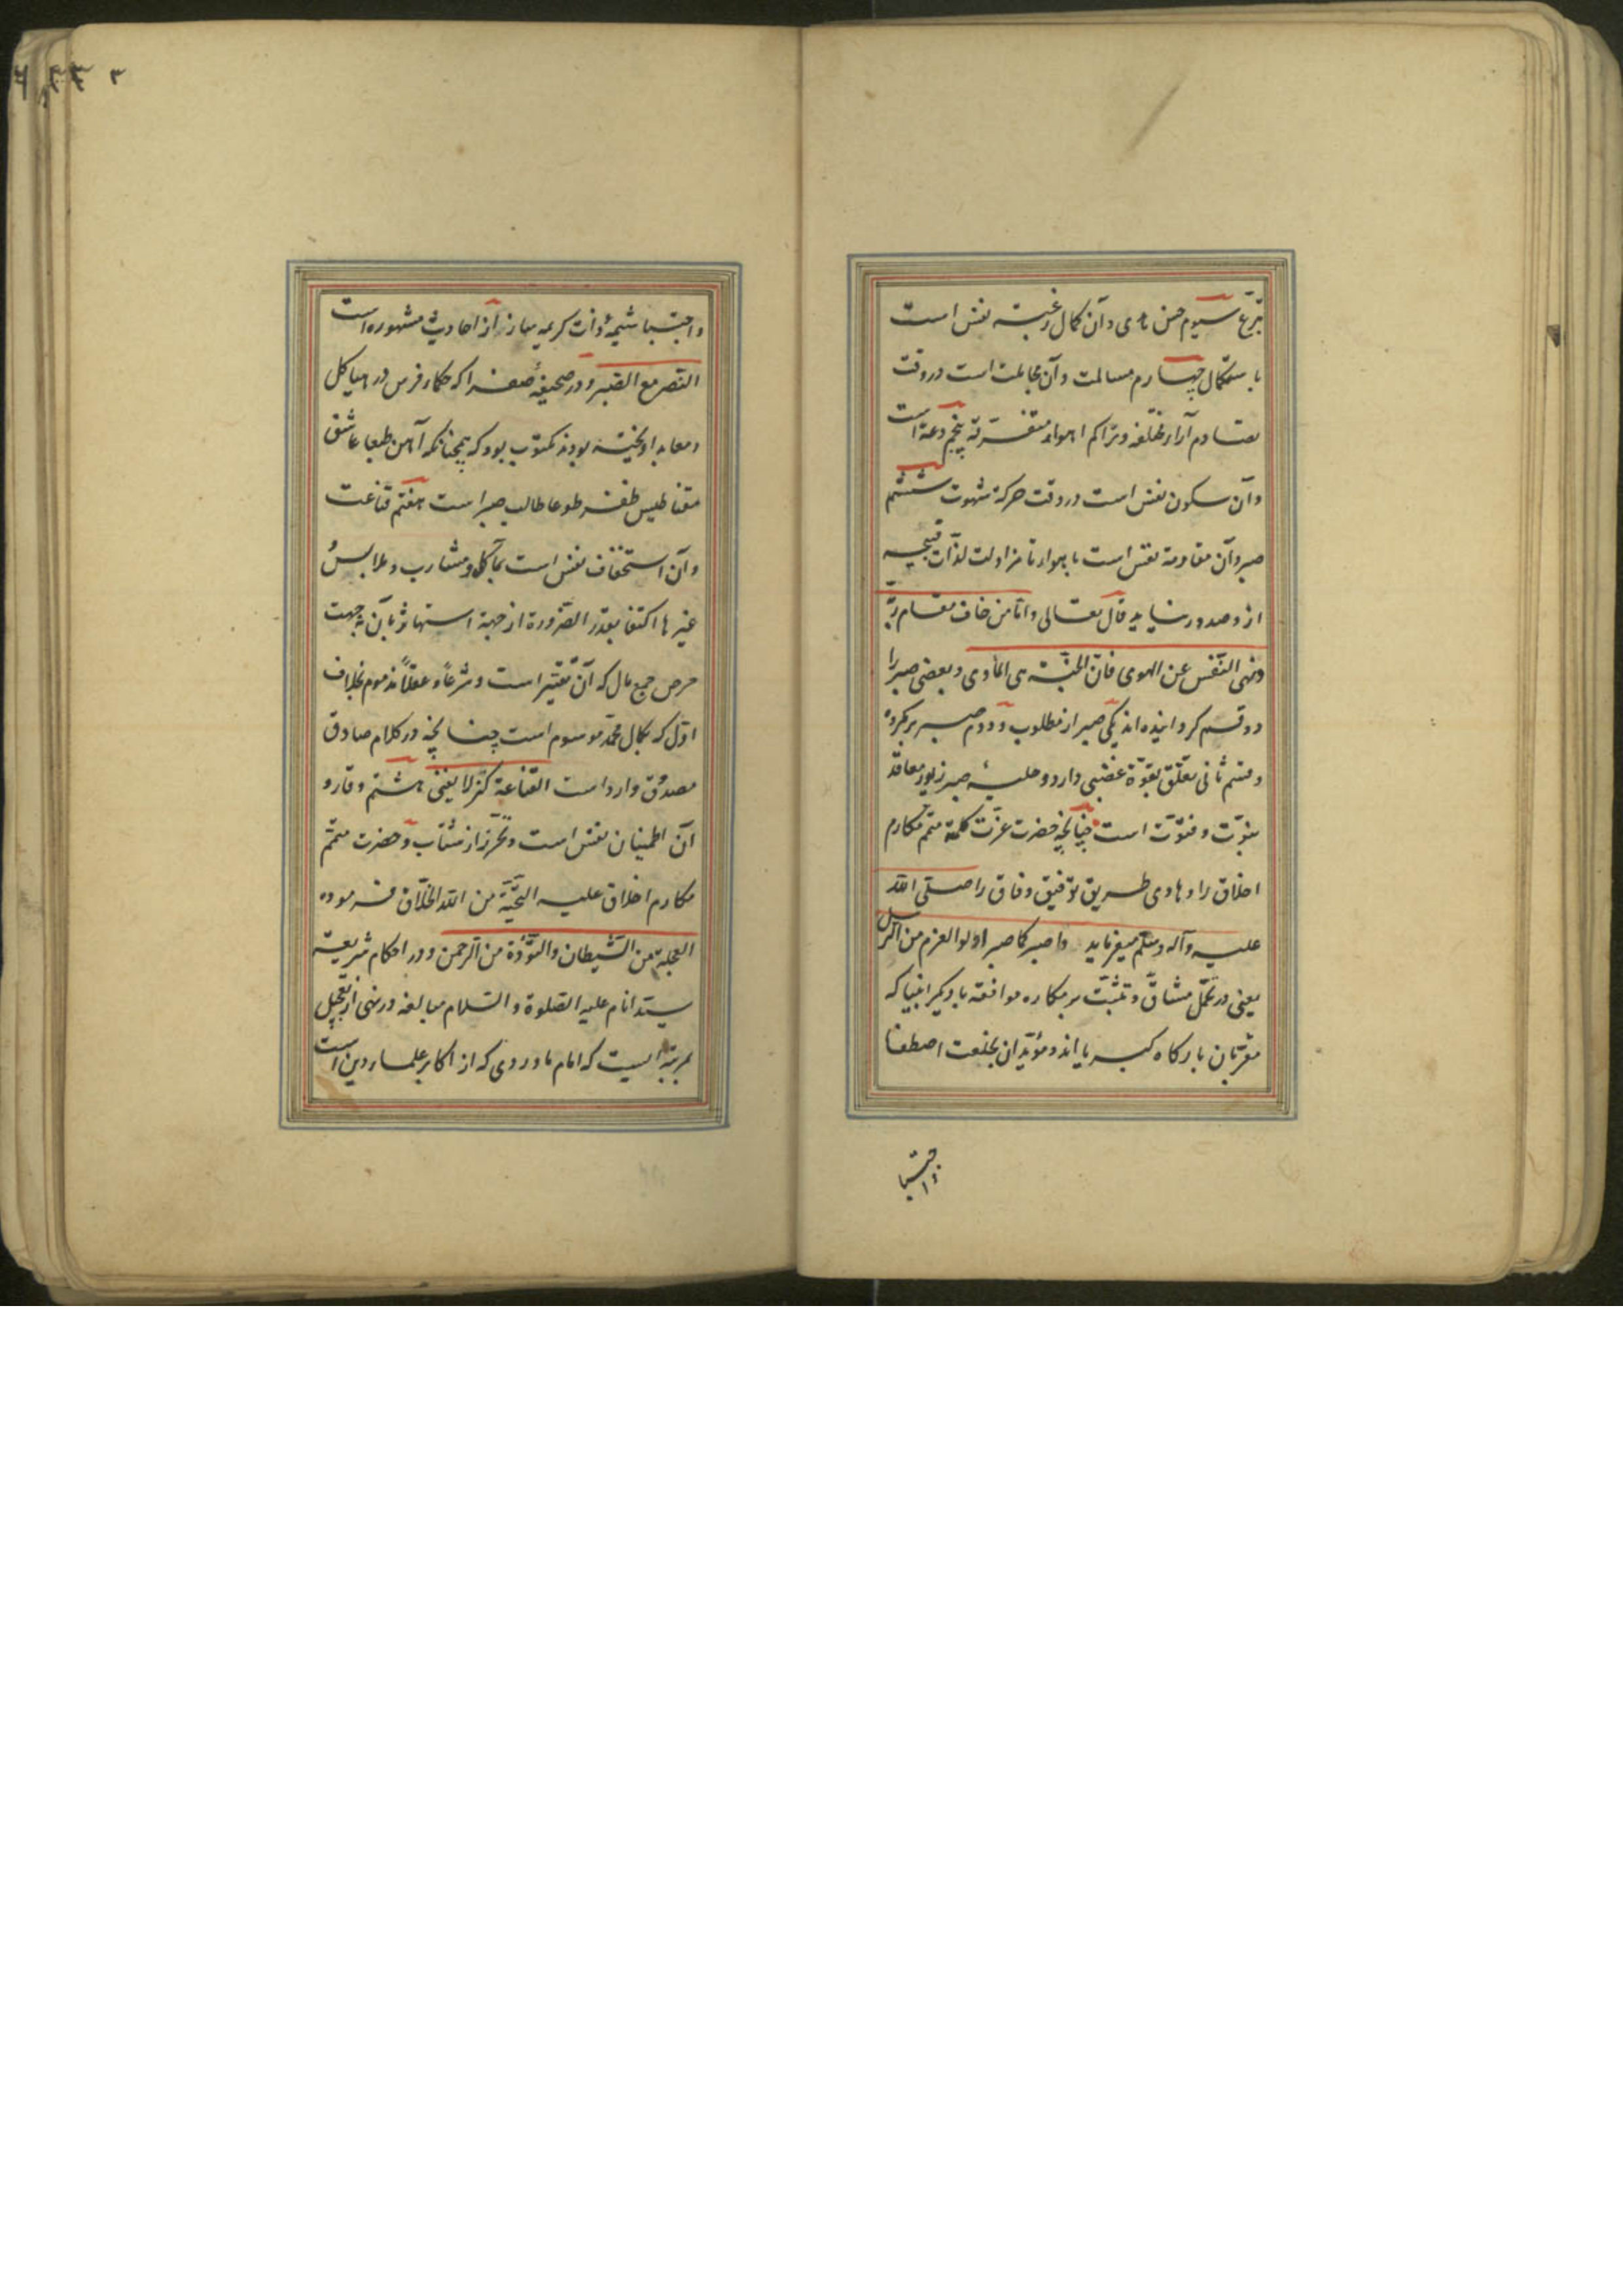 تبرّع سیوم حسن هدی و آن کمال رغبة نفس است
باستکمال چهارم مسالمت و آن مجاملت است در وقت
تصادم آراء مختلفه و تراکم اهواء متفرقة پنجم دعة است
و آن سکون نفس است در وقت حرکة شهوت ششم
صبر و آن مقاومة نفس است با هوا تا مزاولت لذّات قبیحه
ازو صدور نیاید قال تعالی و امّا من خاف مقام ربّه
و نهی النّفس عن الهوی فانّ الجنّة هی المأوی و بعضی صبر را
دو قسم گردانیده اند یکی صبر از مطلوب و دوم صبر بر مکروه
و قسم ثانی تعلّق بقوّة غضبی دارد و حلیهٔ صبر زیور معاقد
نبوّت و فتوّت است چنانچه حضرت عزّت کلمة متمّم مکارم
اخلاق را و هادی طریق توفیق و وفاق را صلّی الله
علیه و آله و سلّم میفرماید واصبر کما صبر اولوا العزم من الرسل
یعنی در تحمّل مشاقّ و تثبّت بر مکاره موافقه با دیگر انبیا که
مقرّبان بارگاه کبریا اند و مؤیّدان بخلعت اصطفا
و اجتبا
و اجتبا شیمهٔ ذات کریمه ساز و از احادیث مشهوره است
النصر مع الصبر و در صحیفهٔ صفرا که حکماء فرس در هیاکل
و معابد اویخته بودند مکتوب بود که همچنانکه آهن طبعا عاشق
مقناطیس ظفر طوعا طالب صبر است هفتم قناعت
و آن استخفاف نفس است بمآکل و مشارب و ملابس و
غیرها اکتفا بقدر الضّرورة از جهة استهانة بآن نه جهت
حرص جمع مال که آن تقتیر است و شرعاً و عقلاً مذموم بخلاف
اوّل که بکمال محمدة موسوم است چنانچه در کلام صادق
مصدّق وارد است القناعة کنز لا یفنی هشتم وقار و
آن اطمینان نفس است و تحرّز از شتاب و حضرت متمّم
مکارم اخلاق علیه التحیّة من الله الخلّاق فرموده
العجلة من الشّیطان و التّؤدة من الرحمن و در احکام شریعة
سیّد انام علیه الصّلوة و السّلام مبالغه در نهی از تعجیل
بمرتبة ایست که امام ماوردی که از اکابر علماء دین است